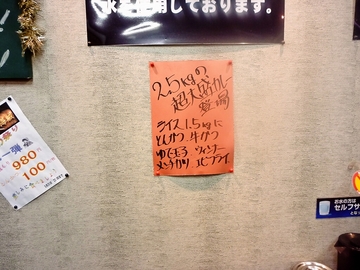 水を使用しております。
2.5kgの
超大盛カレー
登場
ライス1.5kgに
とんかつ 牛かつ
ゆで玉子 ウィンナー
メンチカツ エビフライ
980
100
お水の方は
セルフサ